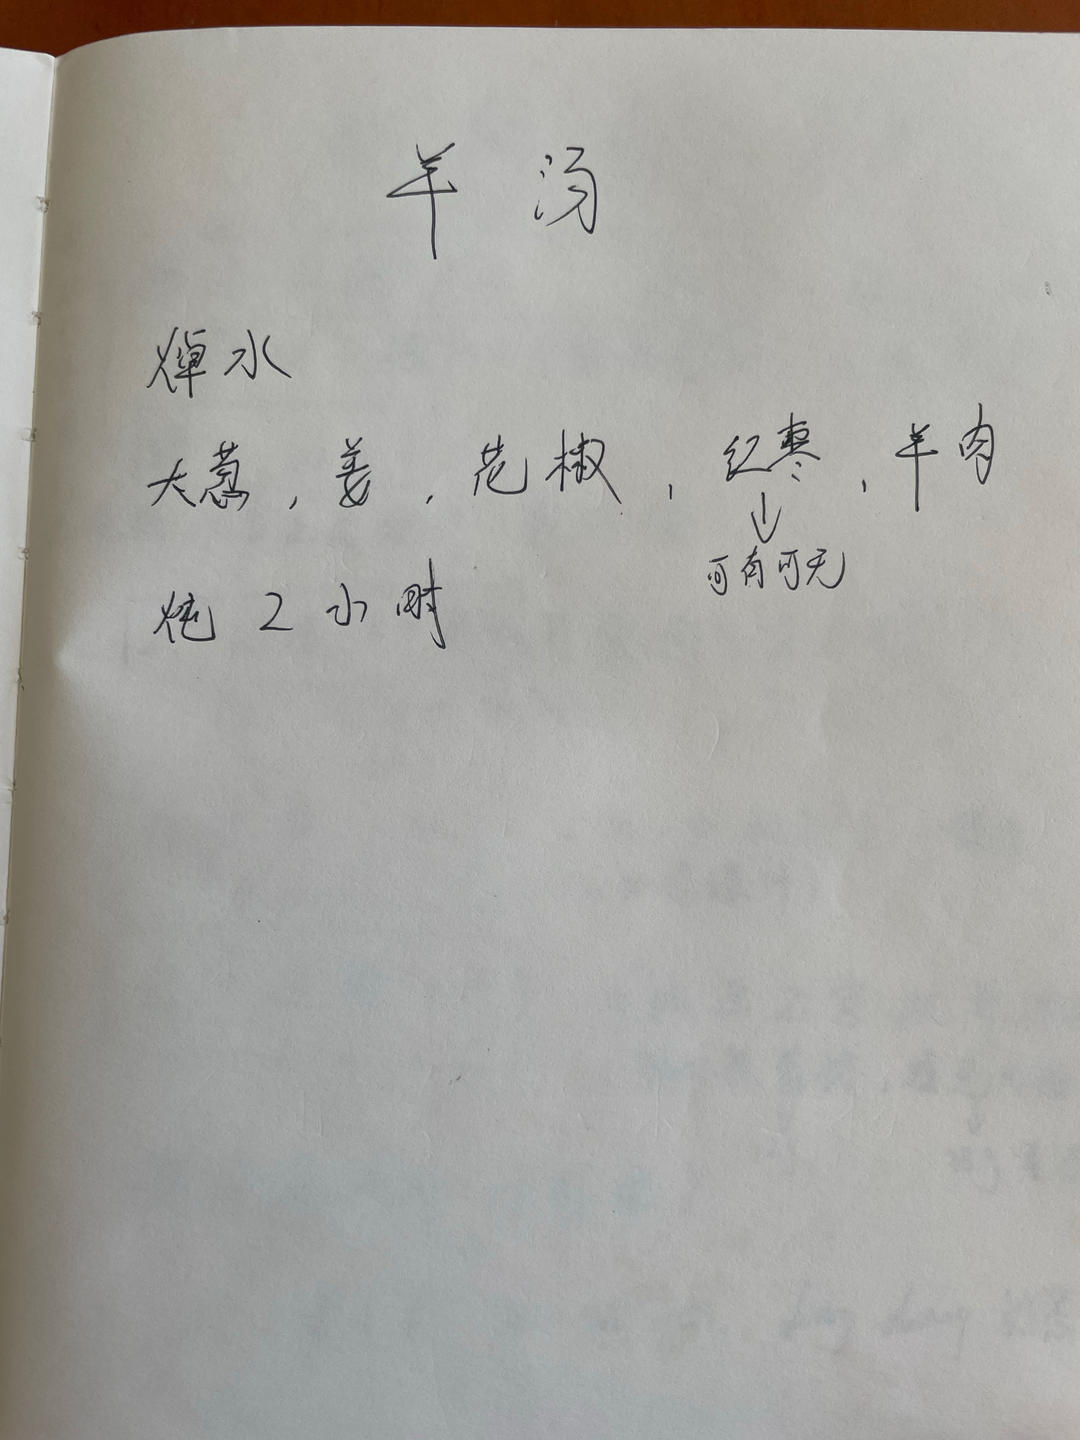 羊汤
焯水
大葱，姜，花椒，红枣，羊肉
↓
可有可无
炖 2 小时